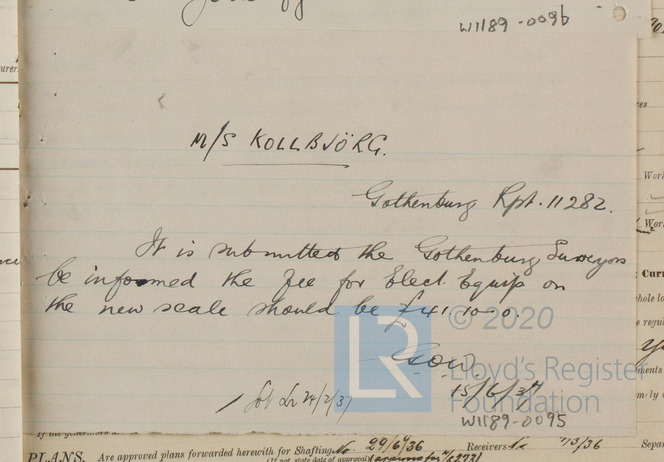 W1189-0096
M/S KOLLBJÖRG.
Gothenburg Rpt. 11282.
It is submitted the Gothenburg Surveyors
be informed the fee for Elect. Equip on
the new scale should be £41-10-0.
© 2020
LR Lloyd's Register
Foundation
15/6/37
Got Lr 24/2/37
W1189-0095
PLANS. Are approved plans forwarded herewith for Shafting No. 29/6/36 Receivers
(If not, state date of approval)